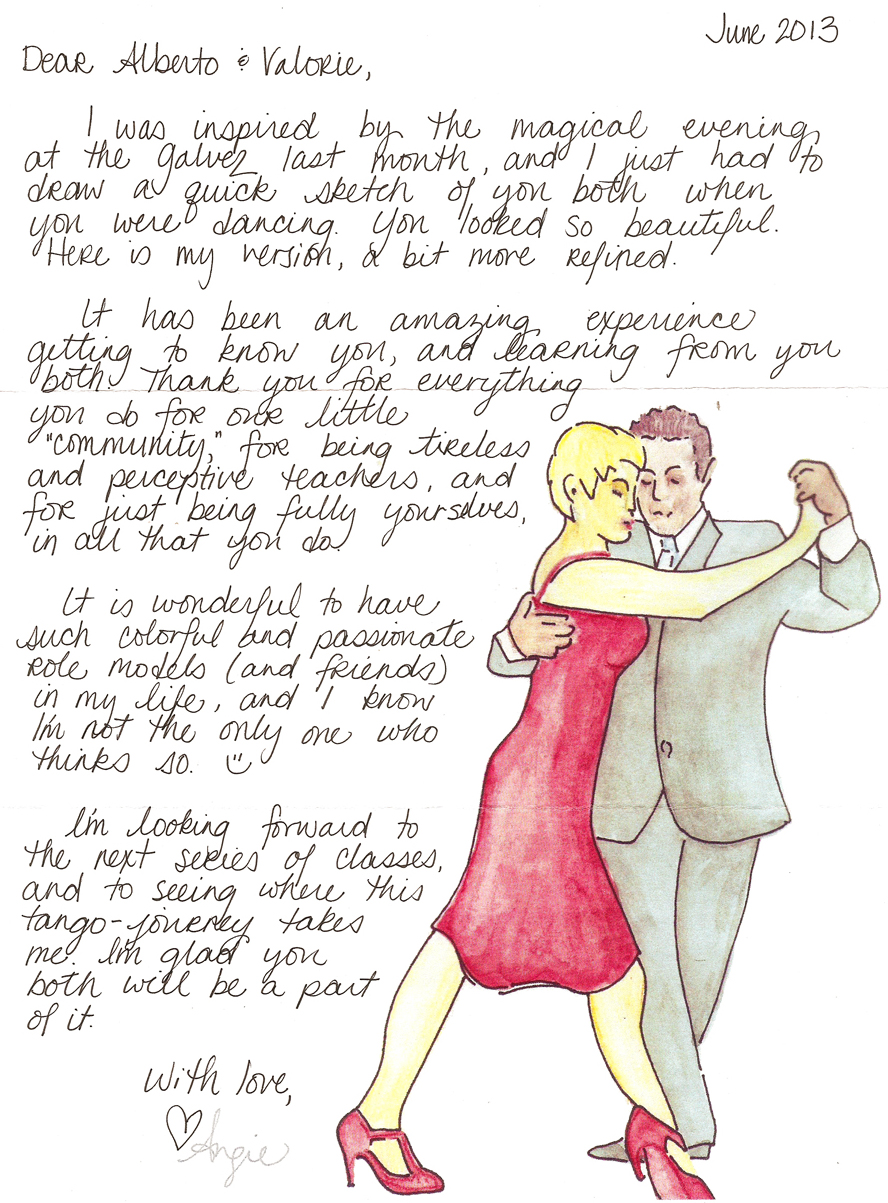 June 2013
Dear Alberto & Valorie,
I was inspired by the magical evening
at the Galvez last month, and I just had to
draw a quick sketch of you both when
you were dancing. You looked so beautiful.
Here is my version, a bit more refined.
It has been an amazing experience
getting to know you, and learning from you
both. Thank you for everything
you do for our little
"community," for being tireless
and perceptive teachers, and
for just being fully yourselves,
in all that you do.
It is wonderful to have
such colorful and passionate
role models (and friends)
in my life, and I know
I'm not the only one who
thinks so.
I'm looking forward to
the next series of classes,
and to seeing where this
tango-journey takes
me. I'm glad you
both will be a part
of it.
With love,
Angie